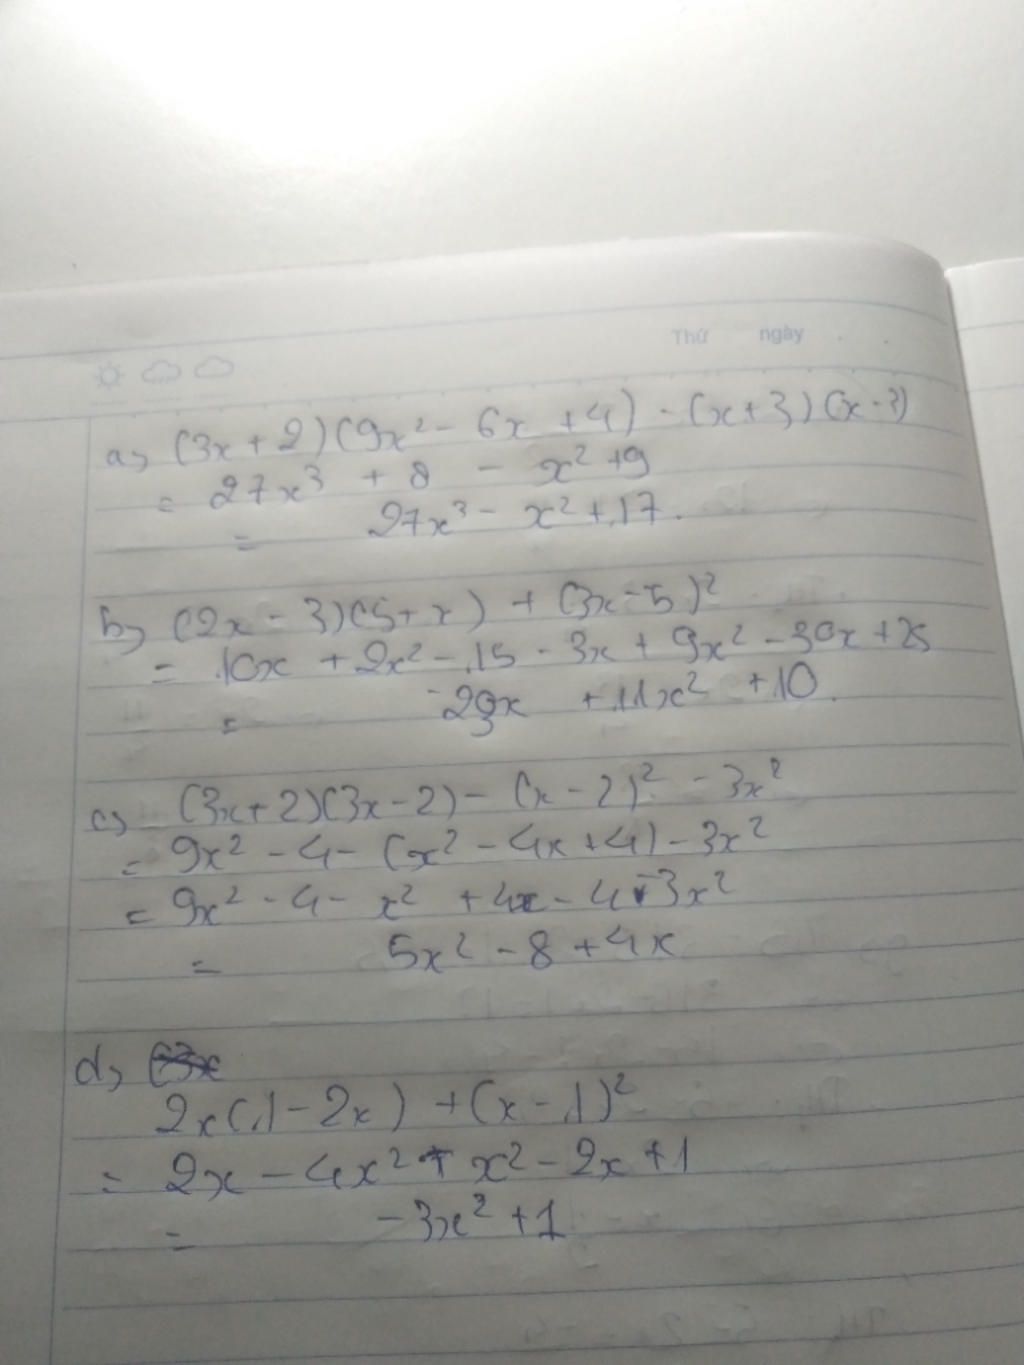 Thứ ngày
a, (3x+2)(9x² - 6x + 4) - (x+3)(x-3)
= 27x³ + 8 - x² + 9
= 27x³ - x² + 17.
b, (2x - 3)(5+x) + (3x-5)²
= 10x + 2x² - 15 - 3x + 9x² - 30x + 25
= -23x + 11x² + 10.
c, (3x+2)(3x-2) - (x-2)² - 3x²
= 9x² - 4 - (x² - 4x + 4) - 3x²
= 9x² - 4 - x² + 4x - 4 - 3x²
= 5x² - 8 + 4x
d, (3x
2x(1 - 2x) + (x - 1)²
= 2x - 4x² + x² - 2x + 1
= -3x² + 1